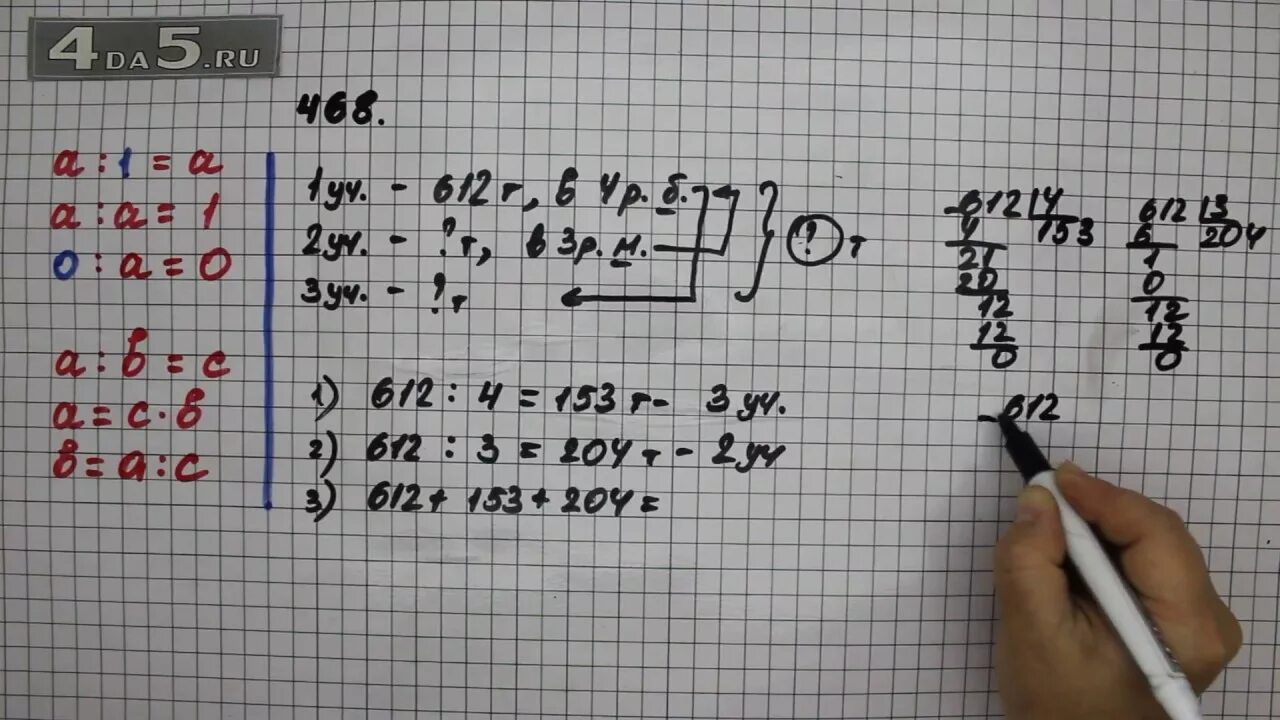 4DA5.RU
468.
a : 1 = a
a : a = 1
0 : a = 0
a : в = c
a = c · в
в = a : c
1уч. - 612 т, в 4 р. б.
2уч. - ? т, в 3 р. м.
3уч. - ? т
? т
1) 612 : 4 = 153 т - 3 уч.
2) 612 : 3 = 204 т - 2 уч
3) 612 + 153 + 204 =
612 4
4 153
21
20
12
12
0
612 3
6 204
1
0
12
12
0
612